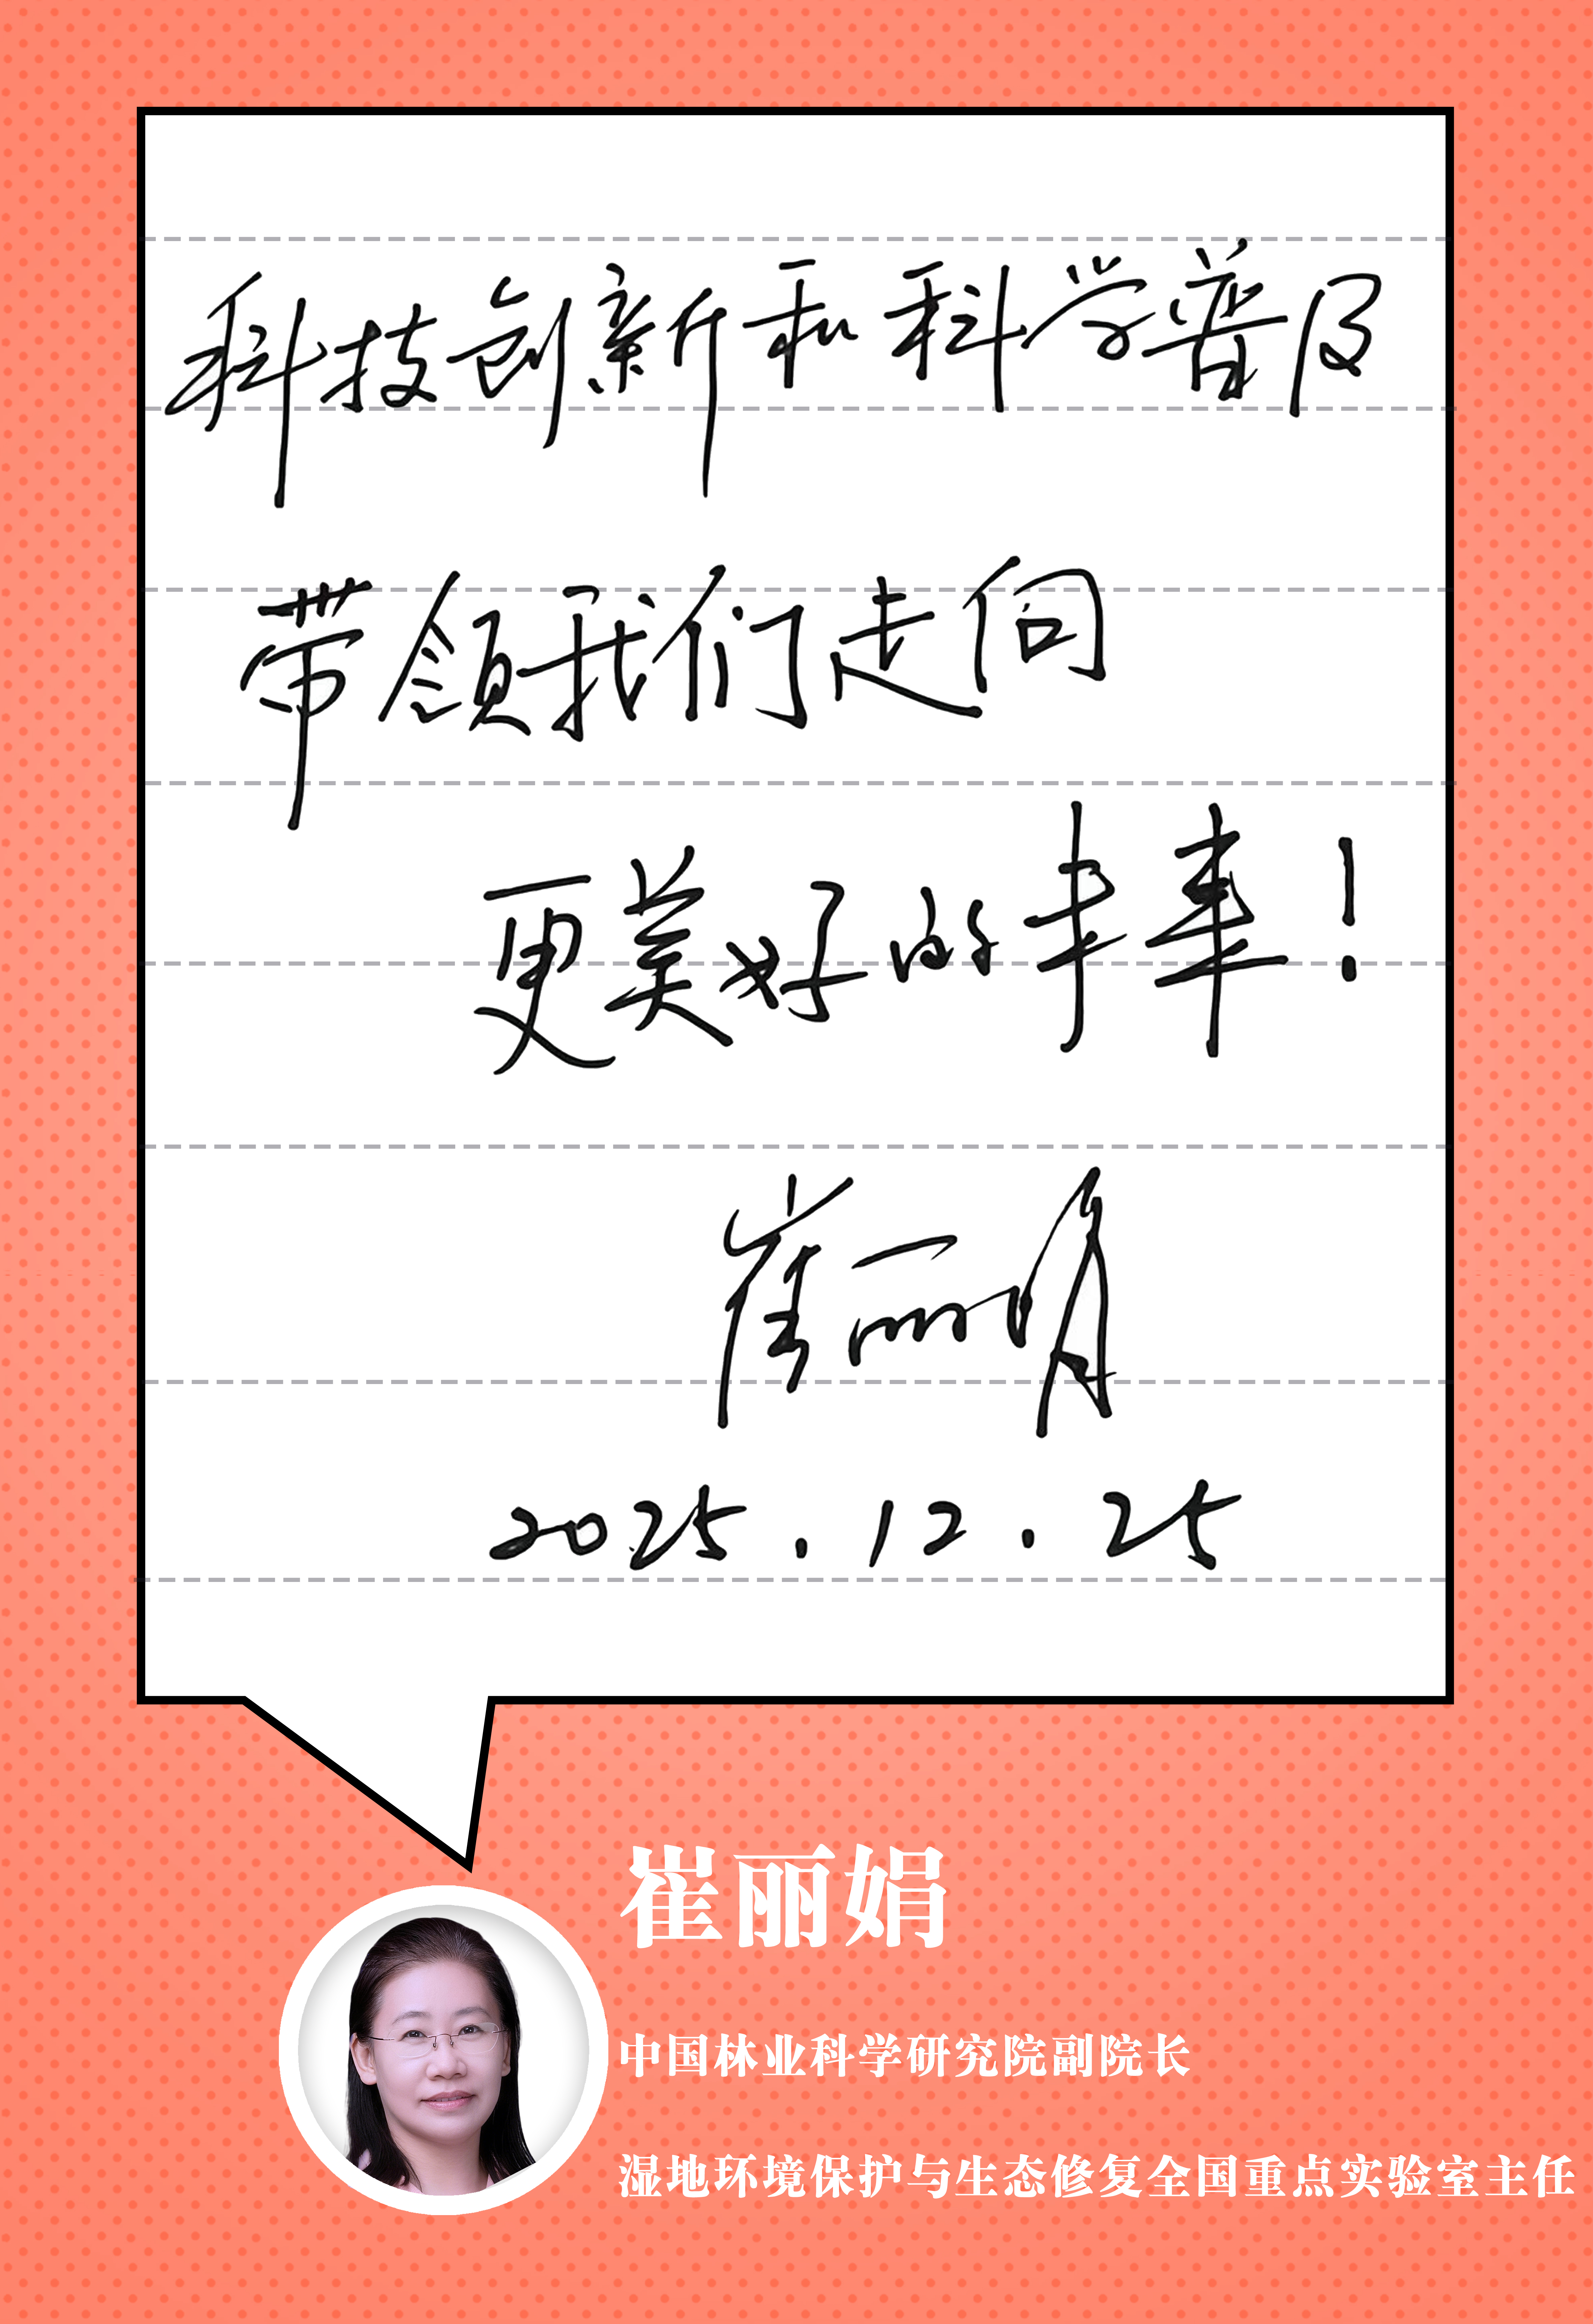 科技创新和科学普及
带领我们走向
更美好的未来！
崔丽娟
2025.12.25
崔丽娟
中国林业科学研究院副院长
湿地环境保护与生态修复全国重点实验室主任